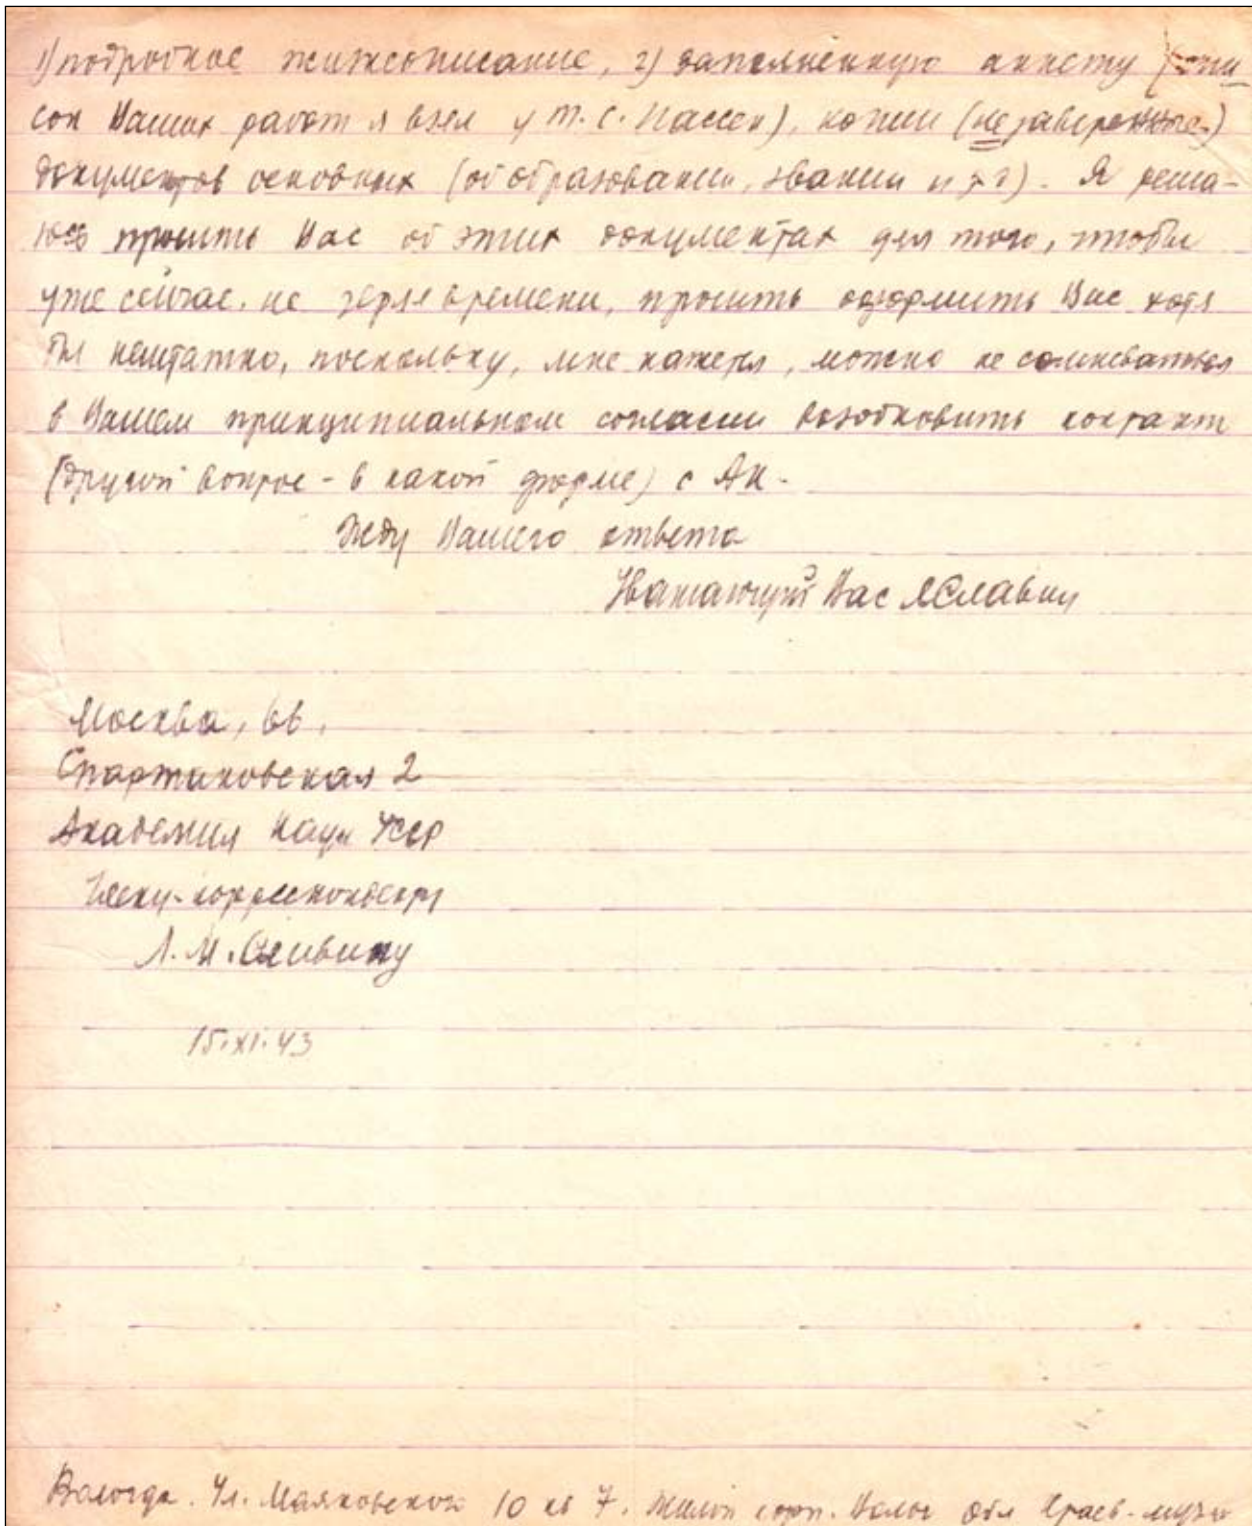 1) подробное жизнеописание, 2) заполненную анкету (спи
сок Ваших работ я взял у Т. С. Пассек), копии (незаверенные)
документов основных (об образовании, звании и т г). Я реша-
юсь просить Вас об этих документах для того, чтобы
уже сейчас, не теряя времени, просить оформить Вас хотя
бы нештатно, поскольку, мне кажется, можно не сомневаться
в Вашем принципиальном согласии возобновить контакт
(другой вопрос - в какой форме) с АН.
Жду Вашего ответа
Уважающий Вас ЛСлавин
Москва, 66,
Спартаковская 2
Академия Наук УССР
Члену-корреспонденту
Л. М. Славину
15.XI.43
Вологда. Ул. Маяковского 10 кв 7. Жилой корп. Волог обл Краев-музея